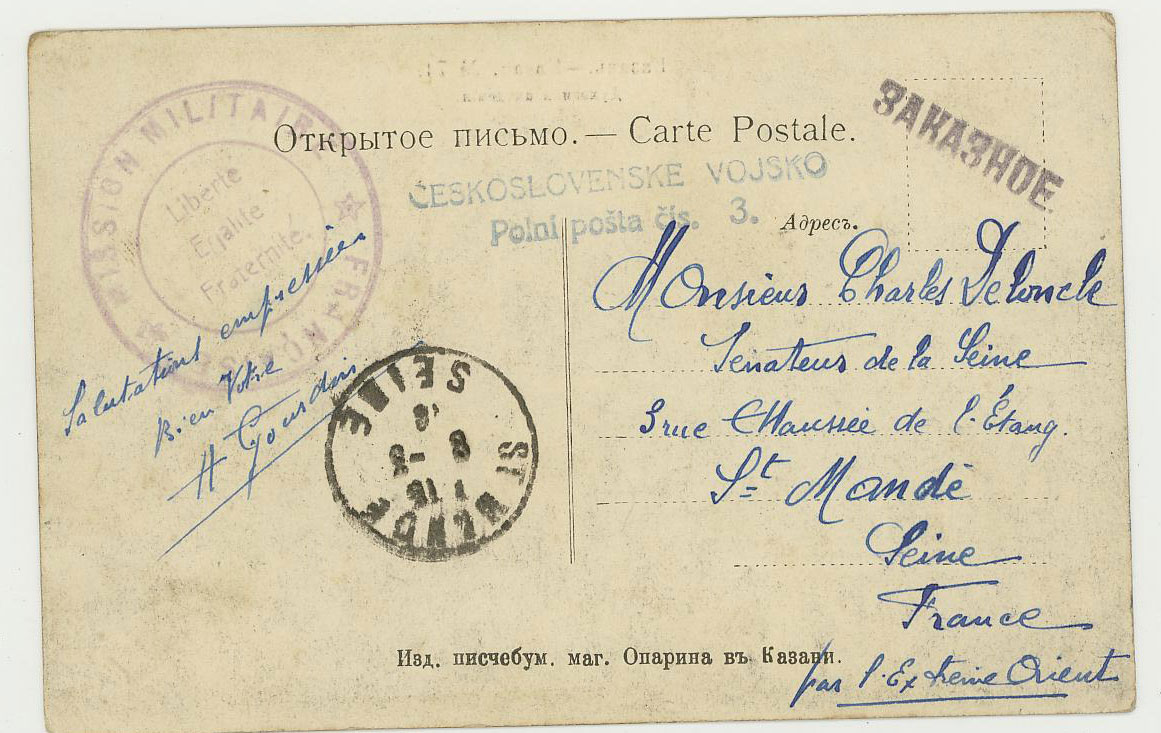 Открытое письмо. — Carte Postale.
ЗАКАЗНОЕ.
MISSION MILITAIRE FRANÇAISE
Liberte
Egalite
Fraternité.
ČESKOSLOVENSKE VOJSKO
Polní pošta čís. 3.
Адресъ.
Monsieur Charles Deloncle
Senateur de la Seine
3 rue Chaussée de l'Étang.
St Mandé
Seine
France
par l'Extreme Orient
Salutations empressées
Bien Votre
A Gourdon
ST MANDE
SEINE
Изд. писчебум. маг. Опарина въ Казани.